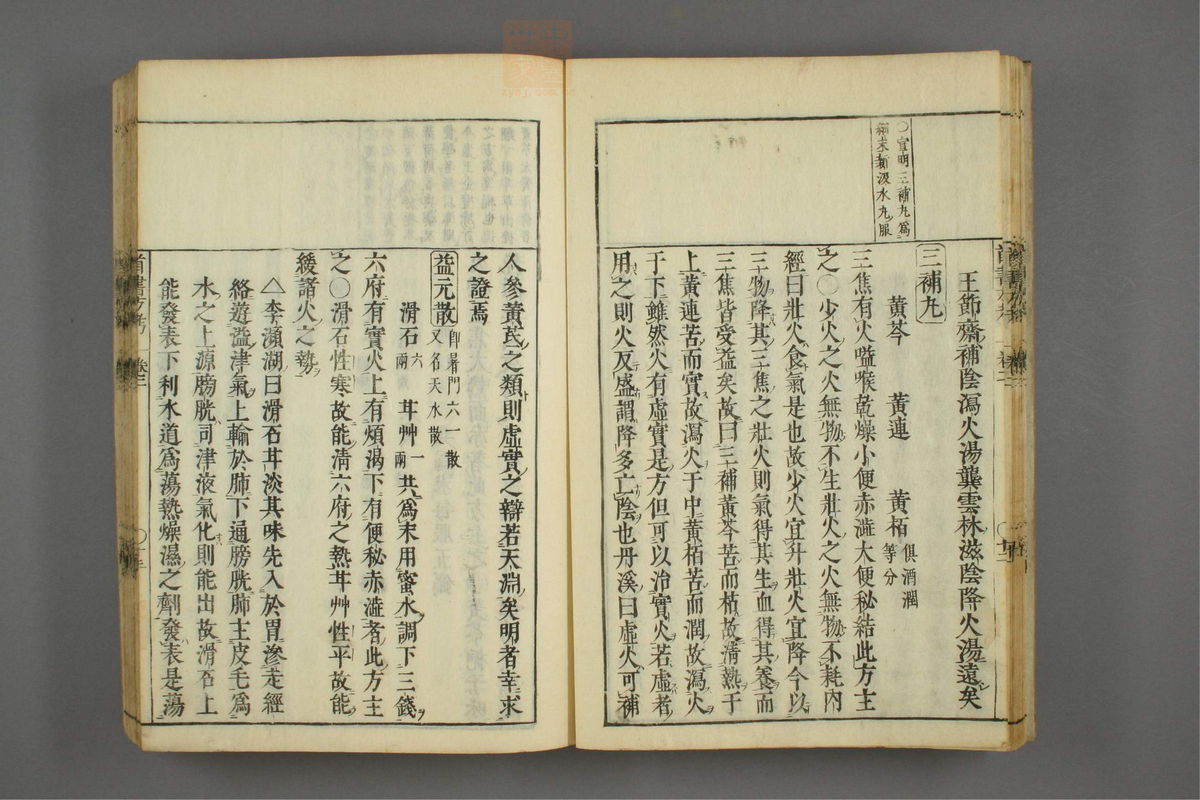 〇宣明三補丸爲
細末新汲水丸服
王節齋補陰瀉火湯龔雲林滋陰降火湯遠矣
三補丸
黃芩 黃連 黃栢 俱酒潤等分
三焦有火嗌喉乾燥小便赤澁大便秘結此方主
之〇少火之火無物不生壯火之火無物不耗內
經曰壯火食氣是也故少火宜升壯火宜降今以
三物降其三焦之壯火則氣得其生血得其養而
三焦皆受益矣故曰三補黃芩苦而枯故清熱于
上黃連苦而實故瀉火于中黃栢苦而潤故瀉火
于下雖然火有虛實是方但可以治實火若虛者
用之則火反盛謂降多亡陰也丹溪曰虛火可補
人參黃芪之類則虛實之辯若天淵矣明者幸求
之證焉
益元散 卽暑門六一散又名天水散
滑石六兩 甘艸一兩 共爲末用蜜水調下三錢
六府有實火上有煩渴下有便秘赤澁者此方主
之〇滑石性寒故能清六府之熱甘艸性平故能
緩諸火之勢
△李瀕湖曰滑石甘淡其味先入於胃滲走經
絡遊溢津氣上輸於肺下通膀胱肺主皮毛爲
水之上源膀胱司津液氣化則能出故滑石上
能發表下利水道爲蕩熱燥濕之劑發表是蕩